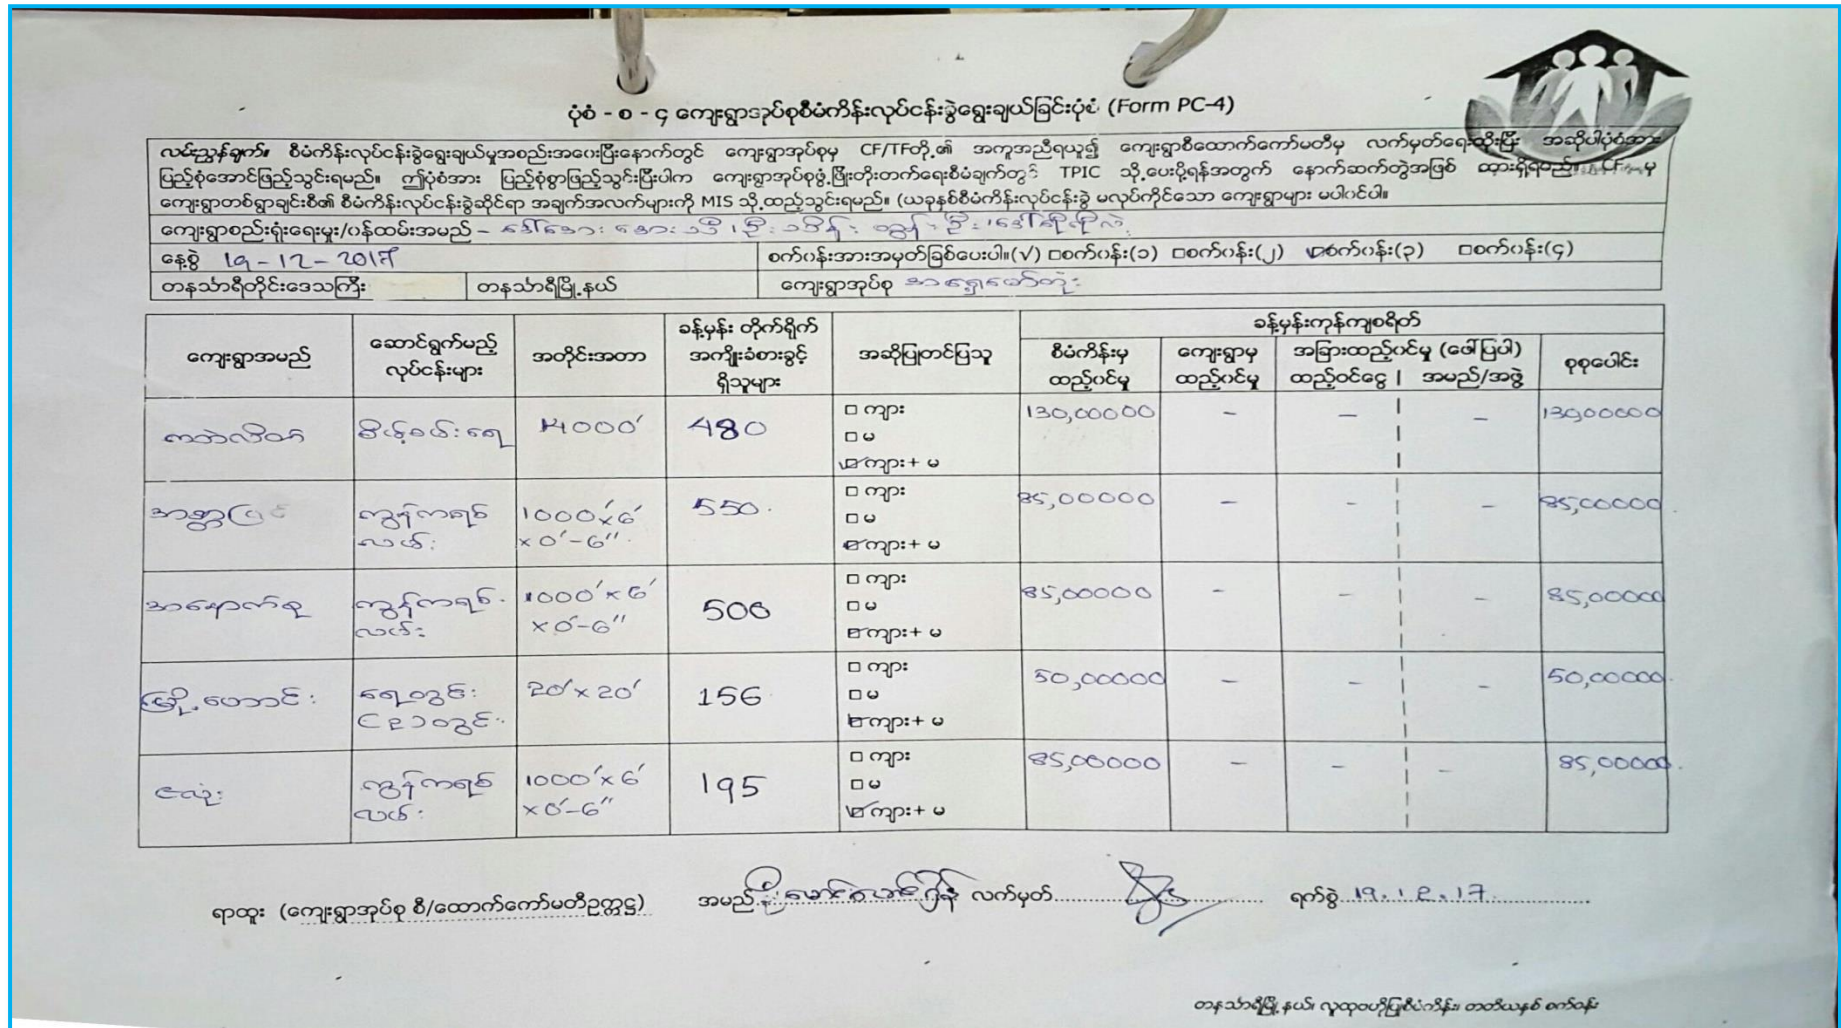 ပုံစံ - စ - ၄ ကျေးရွာအုပ်စုစီမံကိန်းလုပ်ငန်းခွဲရွေးချယ်ခြင်းပုံစံ (Form PC-4)
လမ်းညွှန်ချက်။ စီမံကိန်းလုပ်ငန်းခွဲရွေးချယ်မှုအစည်းအဝေးပြီးနောက်တွင် ကျေးရွာအုပ်စုမှ CF/TFတို့၏ အကူအညီရယူ၍ ကျေးရွာစီထောက်ကော်မတီမှ လက်မှတ်ရေးထိုးပြီး အဆိုပါပုံစံအား
ပြည့်စုံအောင်ဖြည့်သွင်းရမည်။ ဤပုံစံအား ပြည့်စုံစွာဖြည့်သွင်းပြီးပါက ကျေးရွာအုပ်စုဖွံ့ဖြိုးတိုးတက်ရေးစီမံချက်တွင် TPIC သို့ပေးပို့ရန်အတွက် နောက်ဆက်တွဲအဖြစ် ထားရှိရမည်။ CF မှ
ကျေးရွာတစ်ရွာချင်းစီ၏ စီမံကိန်းလုပ်ငန်းခွဲဆိုင်ရာ အချက်အလက်များကို MIS သို့ထည့်သွင်းရမည်။ (ယခုနှစ်စီမံကိန်းလုပ်ငန်းခွဲ မလုပ်ကိုင်သော ကျေးရွာများ မပါဝင်ပါ။
ကျေးရွာစည်းရုံးရေးမှူး/ဝန်ထမ်းအမည် –
နေ့စွဲ 19-12-2017 စက်ဝန်းအားအမှတ်ခြစ်ပေးပါ။(√) □စက်ဝန်း(၁) □စက်ဝန်း(၂) ☑စက်ဝန်း(၃) □စက်ဝန်း(၄)
တနင်္သာရီတိုင်းဒေသကြီး တနင်္သာရီမြို့နယ် ကျေးရွာအုပ်စု
ကျေးရွာအမည် ဆောင်ရွက်မည့် လုပ်ငန်းများ အတိုင်းအတာ ခန့်မှန်း တိုက်ရိုက် အကျိုးခံစားခွင့် ရှိသူများ အဆိုပြုတင်ပြသူ ခန့်မှန်းကုန်ကျစရိတ်
စီမံကိန်းမှ ထည့်ဝင်မှု ကျေးရွာမှ ထည့်ဝင်မှု အခြားထည့်ဝင်မှု (ဖော်ပြပါ) ထည့်ဝင်ငွေ | အမည်/အဖွဲ့ စုစုပေါင်း
14000' 480 □ ကျား 130,00000 – – – 130,00000
□ မ
☑ ကျား+ မ
ကွန်ကရစ် 1000'x6' 550 □ ကျား 85,00000 – – – 85,00000
လမ်း x 0'-6" □ မ
☑ ကျား+ မ
အနောက်စု ကွန်ကရစ် 1000'x6' 500 □ ကျား 85,00000 – – – 85,00000
လမ်း x 0'-6" □ မ
☑ ကျား+ မ
ရေတွင်း 20'x20' 156 □ ကျား 50,00000 – – – 50,00000
□ မ
☑ ကျား+ မ
ဇလုံး ကွန်ကရစ် 1000'x6' 195 □ ကျား 85,00000 – – – 85,00000
လမ်း x 0'-6" □ မ
☑ ကျား+ မ
ရာထူး (ကျေးရွာအုပ်စု စီ/ထောက်ကော်မတီဥက္ကဋ္ဌ) အမည် လက်မှတ် ရက်စွဲ 19.12.17
တနင်္သာရီမြို့နယ်၊ လူထုဗဟိုပြုစီမံကိန်း၊ တတိယနှစ် စက်ဝန်း